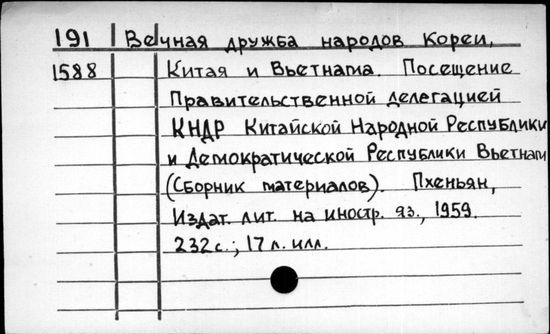 191 Вечная дружба народов Кореи,
1588 Китая и Вьетнама. Посещение
Правительственной делегацией
КНДР Китайской Народной Республики
и Демократической Республики Вьетнам
(Сборник материалов). Пхеньян,
Издат. лит. на иностр. яз., 1959.
232 с.; 17 л. илл.